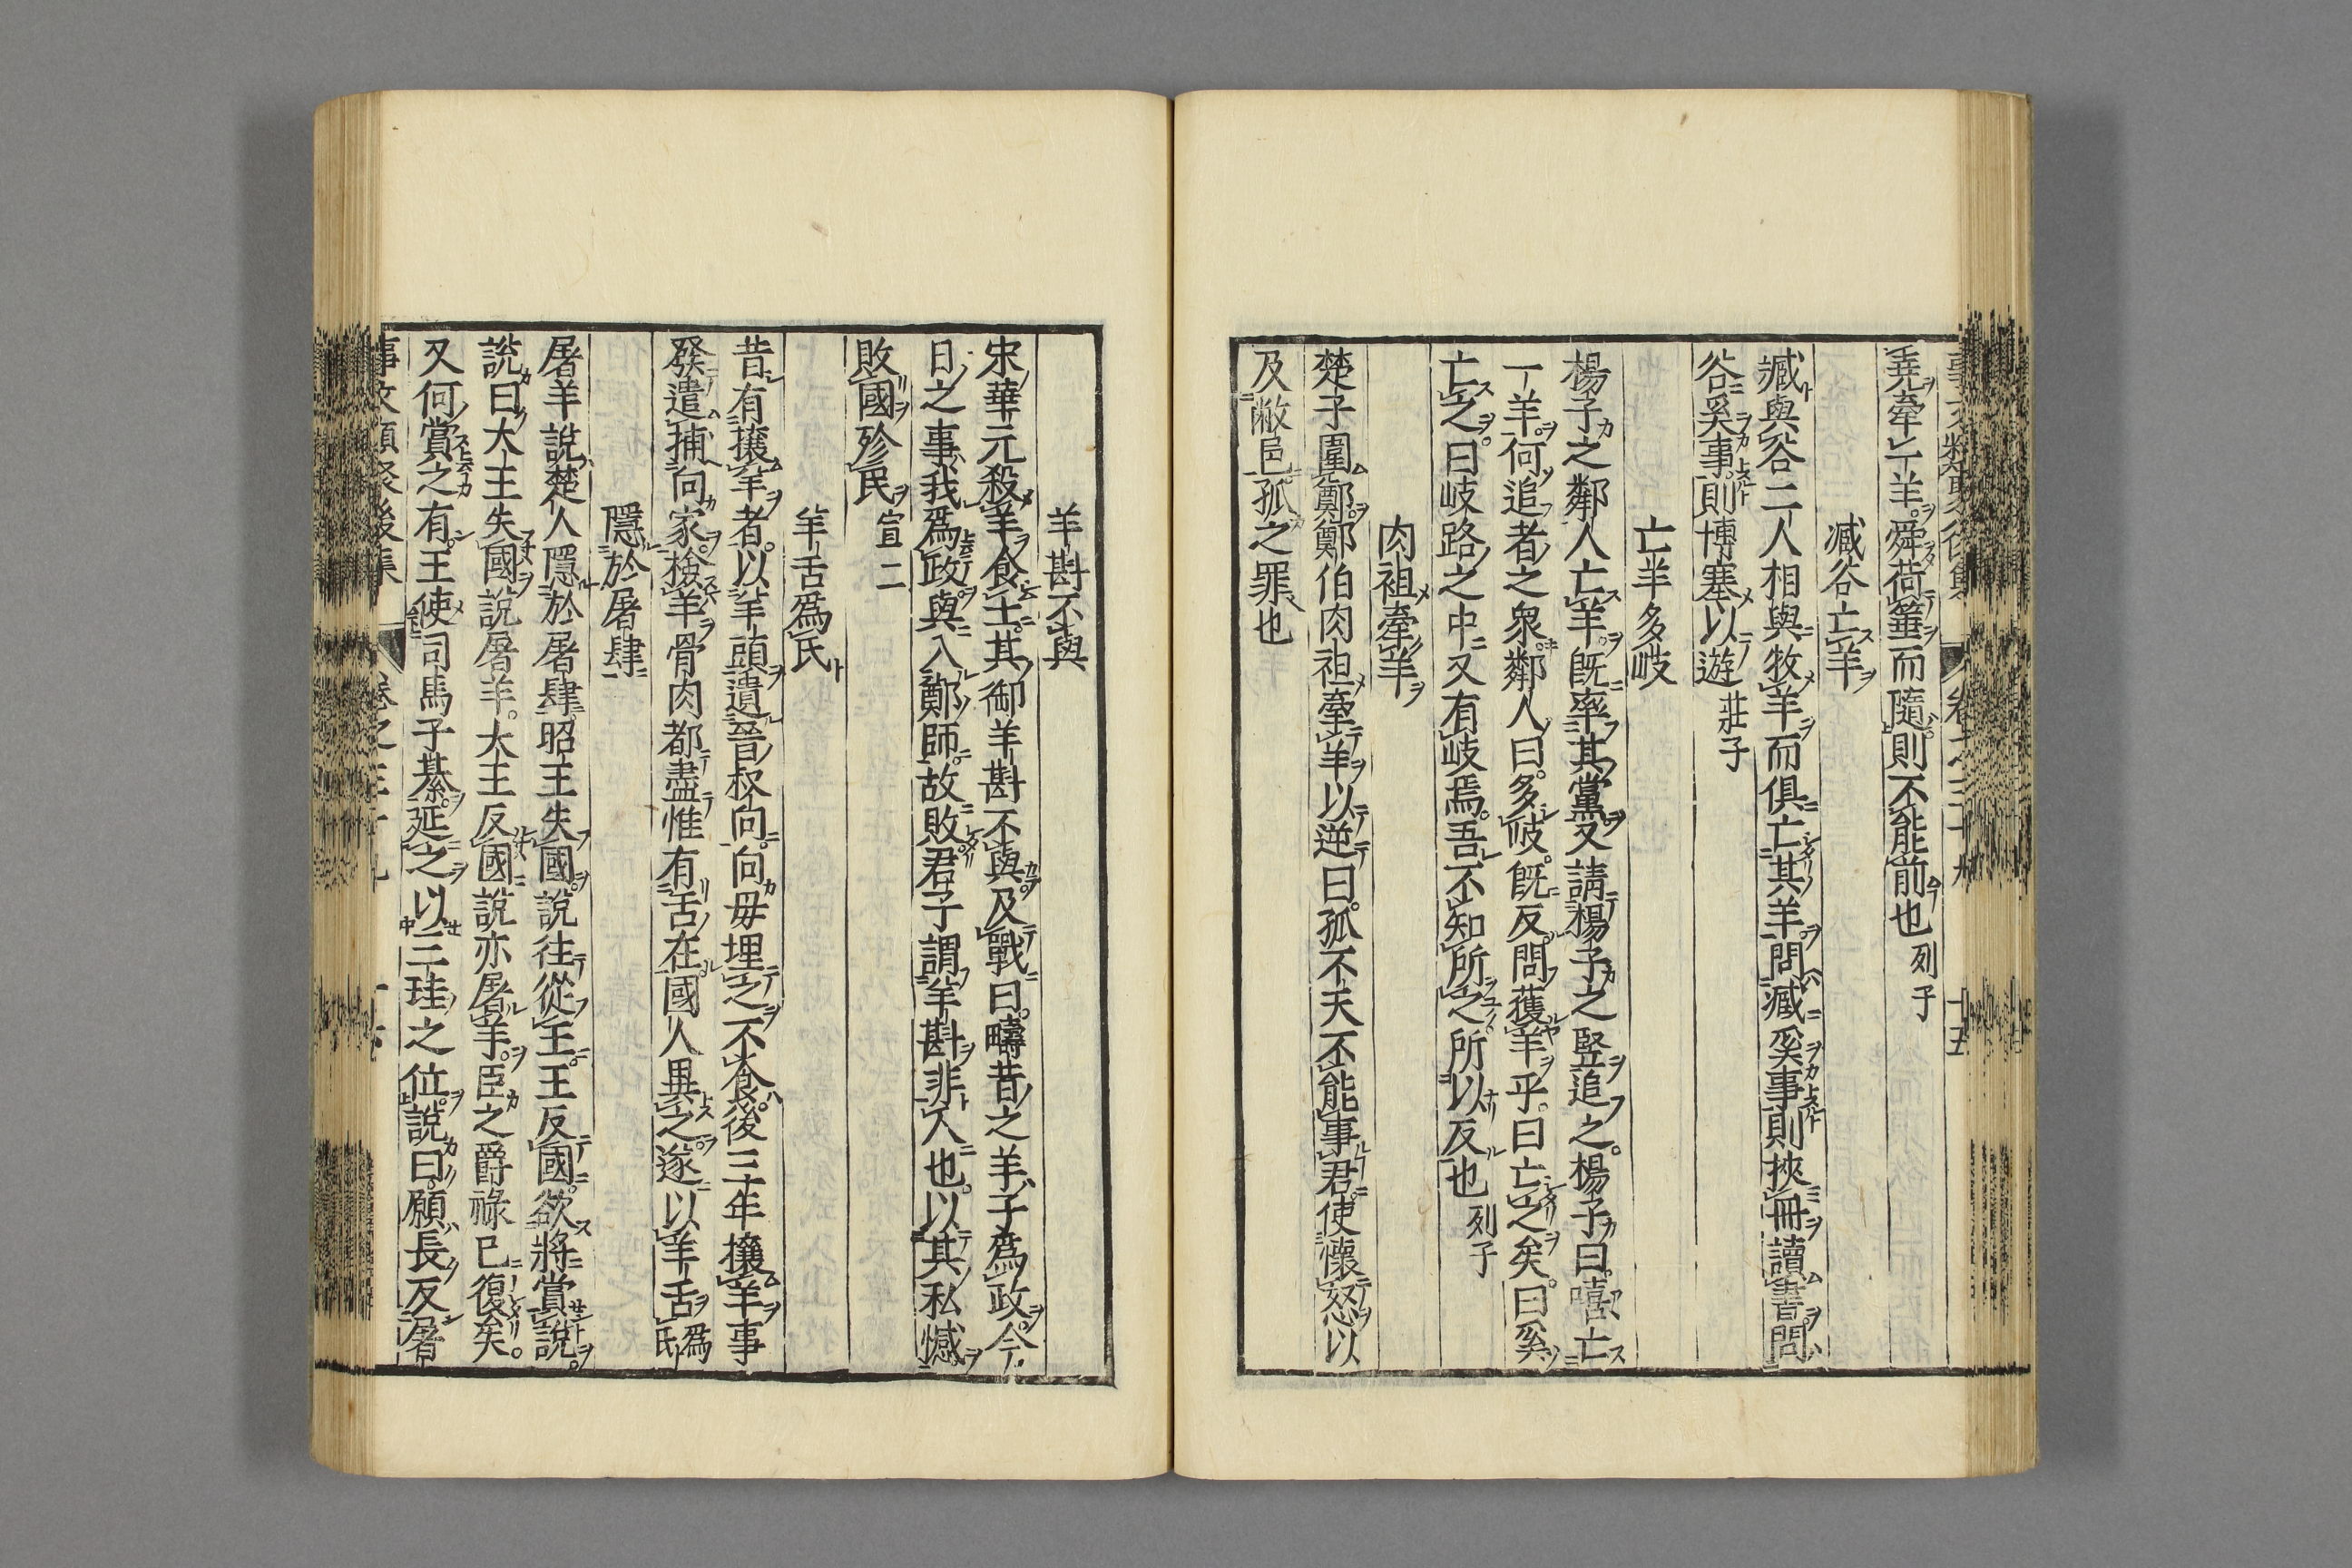 事文類聚後集 卷之三十九 十五
堯牽一羊。舜荷箠而隨。則不能前也 列子
臧谷亡羊
臧與谷二人相與牧羊而俱亡其羊問臧奚事則挾冊讀書問
谷奚事則博塞以遊 莊子
亡羊多岐
楊子之鄰人亡羊。既率其黨又請楊子之豎追之。楊子曰嘻亡
一羊。何追者之衆。鄰人曰。多岐。既反。問獲羊乎。曰亡之矣。曰奚
亡之。曰岐路之中又有岐焉。吾不知所之。所以反也 列子
肉袒牽羊
楚子圍鄭。鄭伯肉袒牽羊以逆曰。孤不天不能事君。使懷怒以
及敝邑。孤之罪也
羊斟不與
宋華元殺羊食士。其御羊斟不與。及戰曰。疇昔之羊子爲政。今
日之事我爲政。與入鄭師。故敗。君子謂羊斟非人也。以其私憾
敗國殄民 宣二
羊舌爲氏
昔有攘羊者。以羊頭遺晉叔向。向母埋之不食。後三年攘羊事
發。遣捕向家。檢羊骨肉都盡惟有舌在。國人異之。遂以羊舌爲氏
隱於屠肆
屠羊說楚人隱於屠肆。昭王失國。說往從王。王反國。欲將賞說。
說曰大王失國說屠羊。大王反國說亦屠羊。臣之爵祿已復矣。
又何賞之有。王使司馬子綦延之以三珪之位。說曰。願長反屠
事文類聚後集 卷之三十九